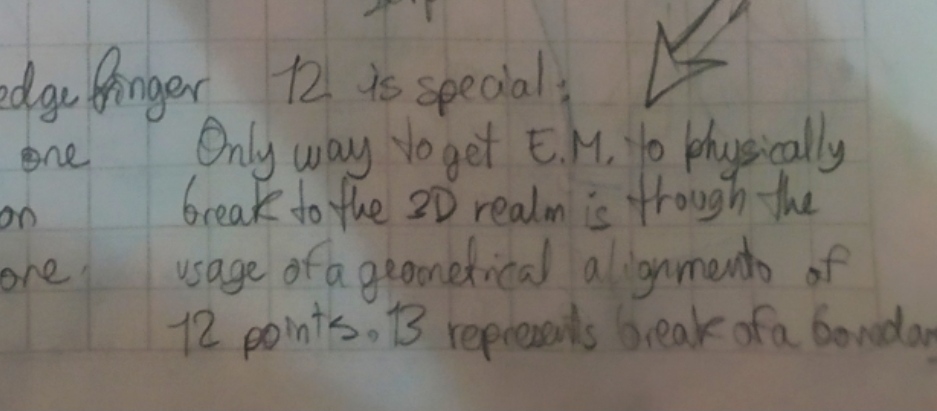 edge finger 12 is special:
one Only way to get E.M. to physically
on break to the 2D realm is through the
one usage of a geometrical alignments of
12 points. 13 represents break of a